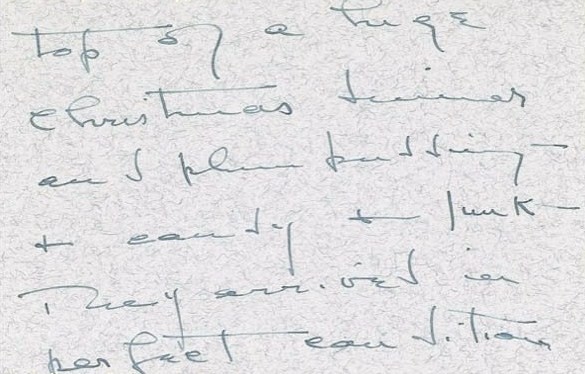 top of a huge
Christmas dinner
and plum pudding -
+ candy + junk -
They arrived in
perfect condition